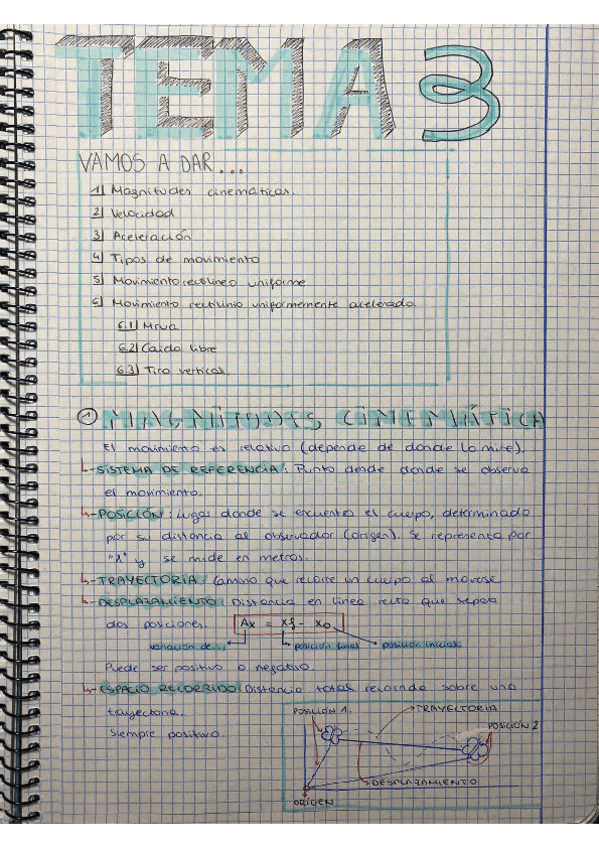 TEMA 3
VAMOS A DAR...
1) Magnitudes cinemáticas.
2) Velocidad
3) Aceleración
4) Tipos de movimiento
5) Movimiento rectilineo uniforme
6) Movimiento rectilinio uniformemente acelerado.
6.1) Mrua
6.2) Caida libre
6.3) Tiro vertical
① MAGNITUDES CINEMÁTICA
El movimiento es relativo (depende de donde lo mire).
↳-SISTEMA DE REFERENCIA: Punto desde donde se observa
el movimiento.
↳-POSICIÓN: Lugar donde se encuentra el cuerpo, determinado
por su distancia al observador (origen). Se representa por
"x" y se mide en metros.
↳-TRAYECTORIA: Camino que recorre un cuerpo al moverse
↳-DESPLAZAMIENTO: Distancia en linea recta que separa
dos posiciones. Δx = xf - x0
variación de... posición final posición inicial.
Puede ser positivo o negativo.
↳-ESPACIO RECORRIDO: Distancia total recorrida sobre una
trayectoria.
Siempre positivo.
POSICIÓN 1.
TRAYECTORIA
POSICIÓN 2
DESPLAZAMIENTO
ORIGEN